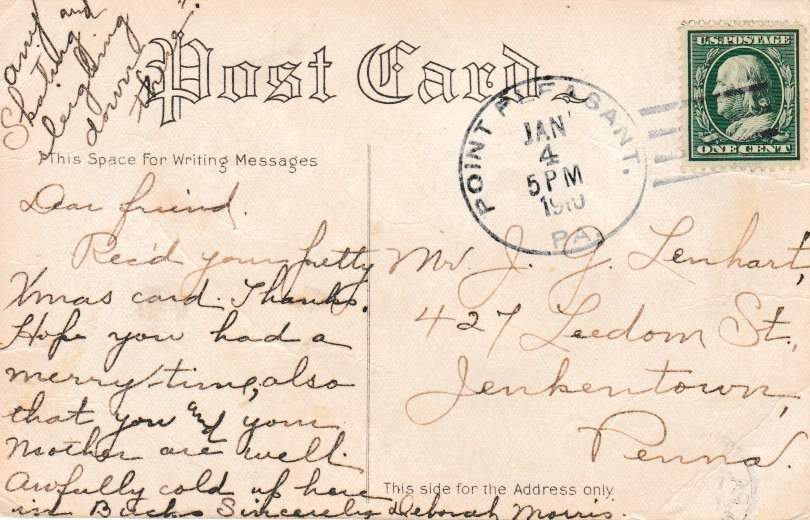 any and
Skating
sleighing
down
there?
Post Card
U.S. POSTAGE
ONE CENT
POINT PLEASANT.
JAN
4
5 PM
1910
PA.
This Space For Writing Messages
Dear friend.
Rec'd your pretty
Xmas card. Thanks.
Hope you had a
merry time, also
that you and your
Mother are well.
Awfully cold up here
in Bucks Sincerely Deborah Morris.
Mr. J. G. Lenhart,
427 Leedom St.,
Jenkentown,
Penna.
This side for the Address only.